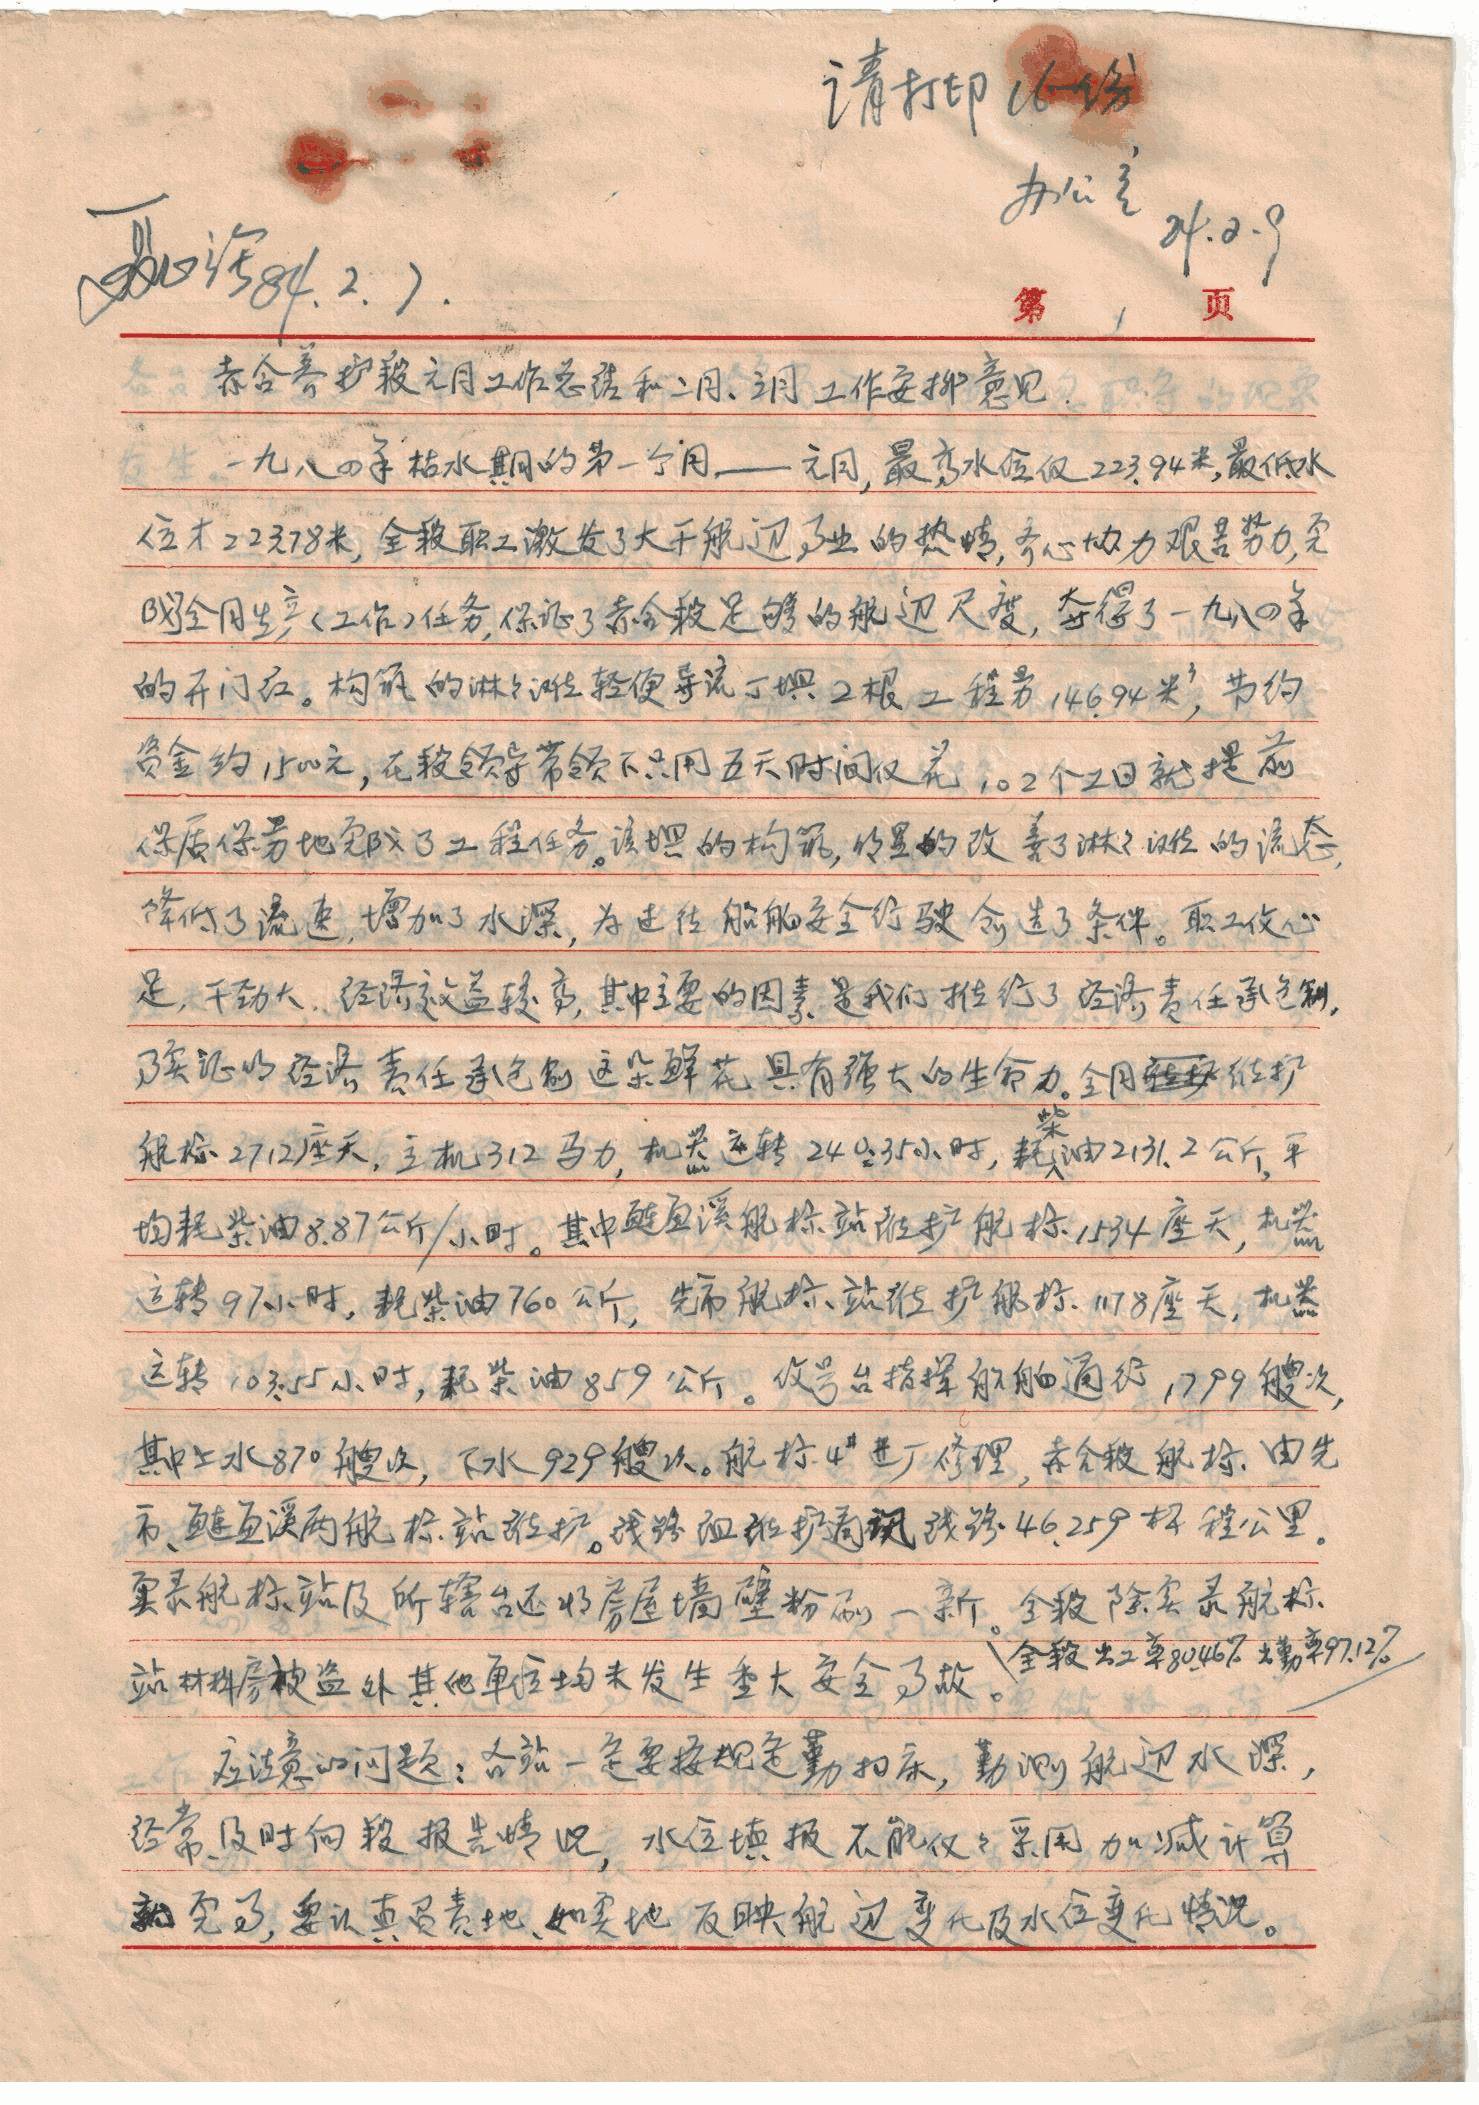 请打印16份
办公室
84.2.9
84.2.7.
第 1 页
赤合养护段元月工作总结和二月、三月工作安排意见.
一九八四年枯水期的第一个月——元月,最高水位仅223.94米,最低水
位才223.78米,全段职工激发了大干航道事业的热情,齐心协力艰苦努力,完
成全月生产(工作)任务,保证了赤合段足够的航道尺度,夺得了一九八四年
的开门红。构筑的淋々滩轻便导流丁坝2根工程量146.94米³,节约
资金约1500元,在段领导带领下只用五天时间仅花102个工日就提前
保质保量地完成了工程任务。该坝的构筑,明显的改善了淋々滩的流态,
降低了流速,增加了水深,为过往船舶安全行驶创造了条件。职工信心
足,干劲大,经济效益较高,其中主要的因素是我们推行了经济责任承包制,
事实证明经济责任承包制这朵鲜花具有强大的生命力。全月维护
航标2712座天,主机312马力,机器运转240:35小时,耗柴油2131.2公斤,平
均耗柴油8.87公斤/小时。其中鲢鱼溪航标站维护航标1534座天,机器
运转97小时,耗柴油760公斤,先市航标站维护航标1178座天,机器
运转103:55小时,耗柴油859公斤。信号台指挥船舶通行1799艘次,
其中上水870艘次,下水929艘次。航标4#进厂修理,赤合段航标由先
市、鲢鱼溪两航标站维护。线路班维护通讯线路46.259杆程公里。
实录航标站及所辖台还将房屋墙壁粉刷一新。全段除实录航标
站材料房被盗外其他单位均未发生重大安全事故。
全段出工率80.46% 出勤率97.12%
应注意的问题:各站一定要按规定勤扫床,勤测航道水深,
经常及时向段报告情况,水位填报不能仅々采用加减计算
就完事,要认真负责地、如实地反映航道变化及水位变化情况。